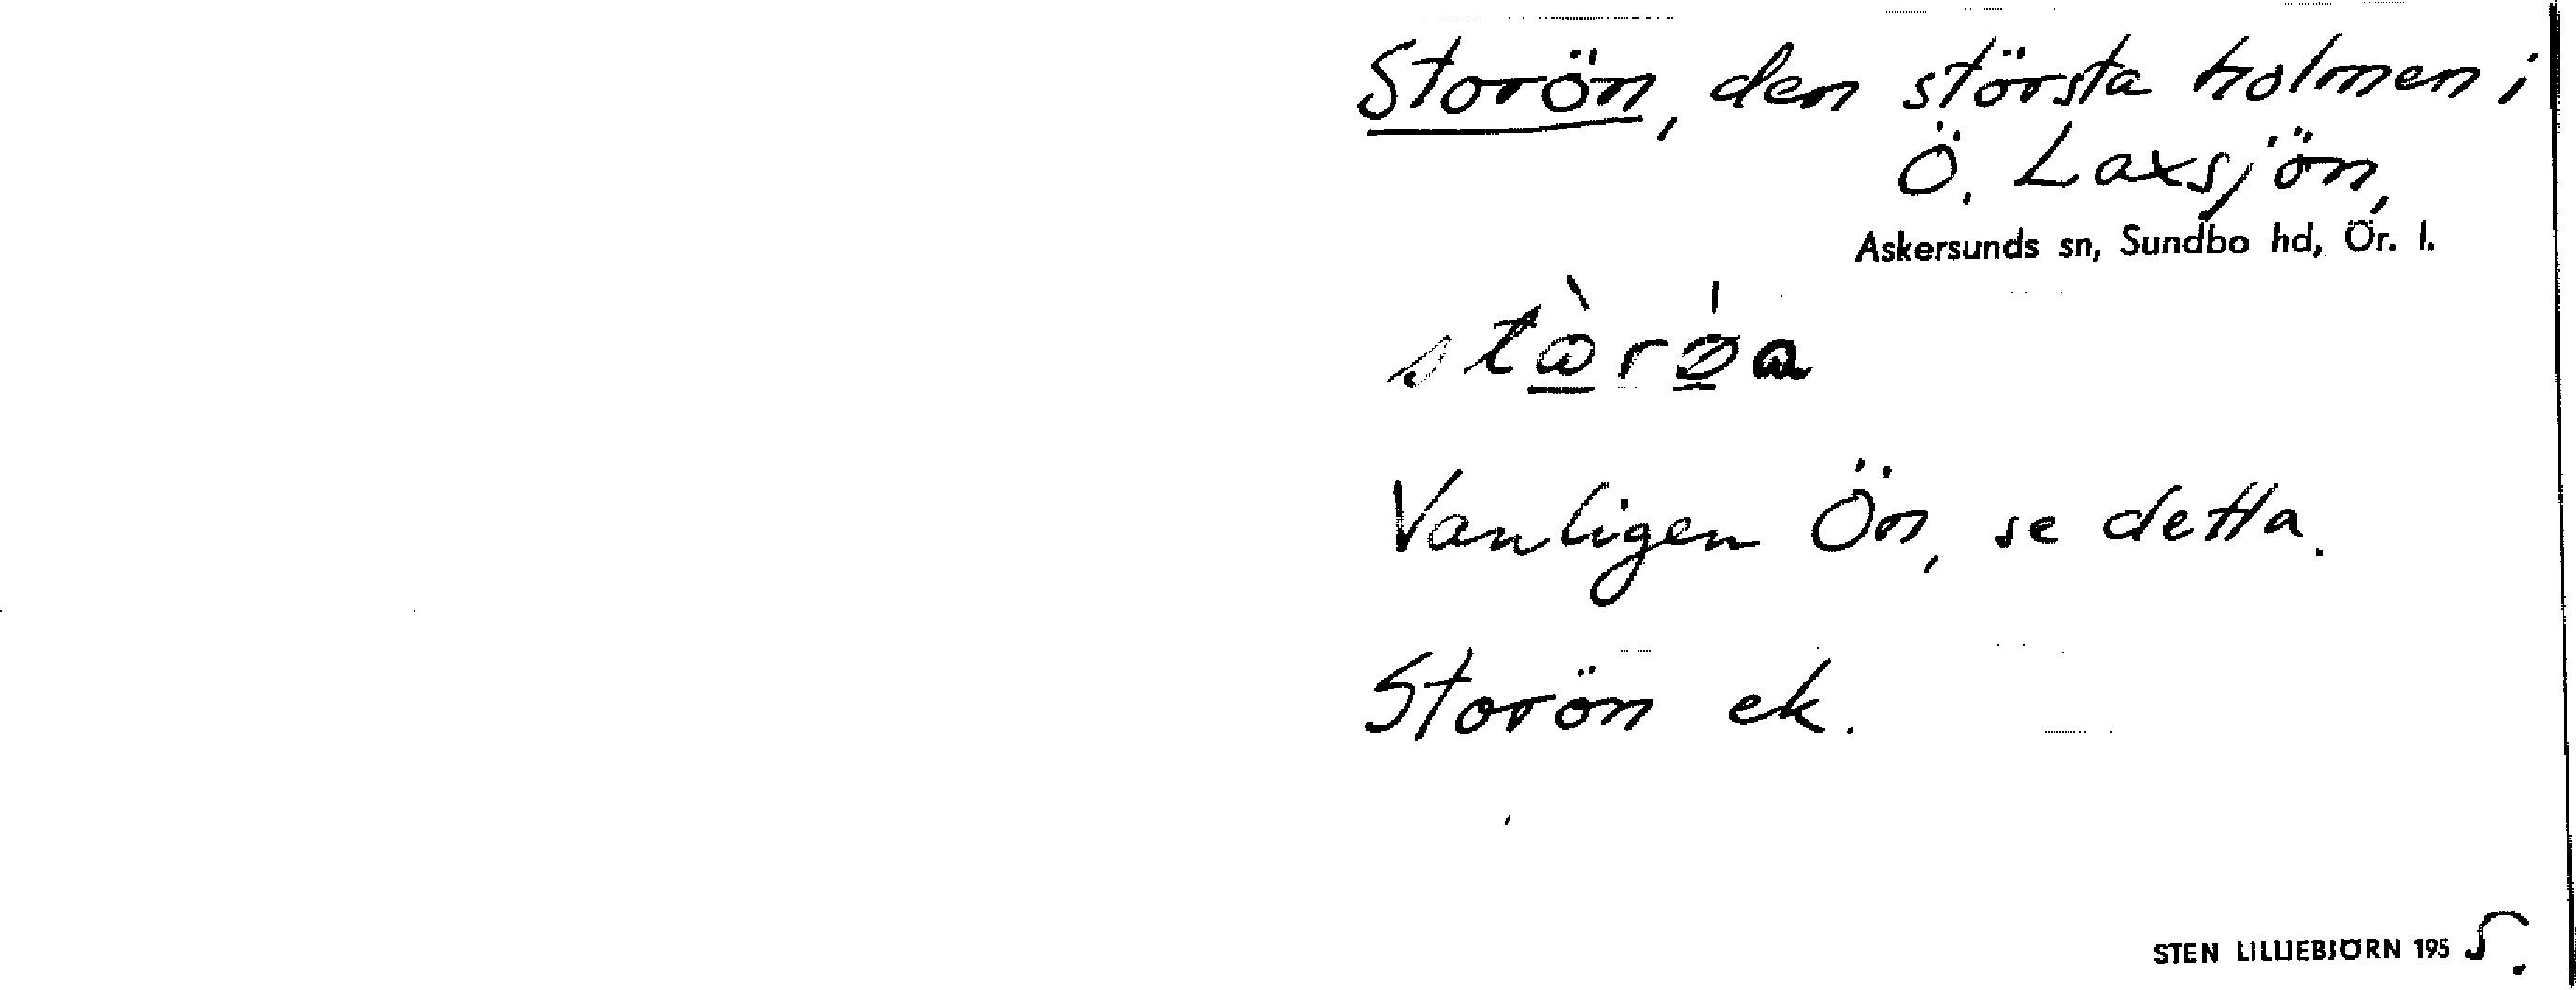 Storön, den största holmen i
Ö. Laxsjön,
Askersunds sn, Sundbo hd, Ör. l.
Vanligen Ön, se detta.
Storön ek.
STEN LILLIEBJÖRN 195 5.